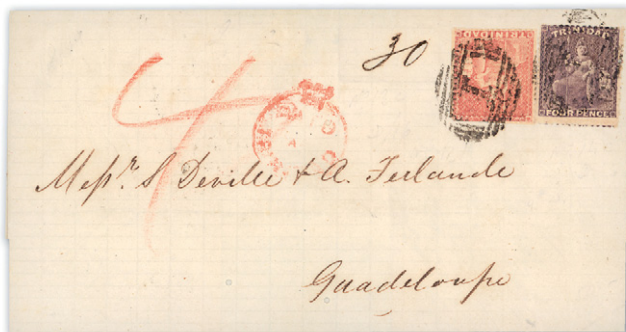 30
TRINIDAD
TRINIDAD
FOUR PENCE
4
Messrs. S Deville & A. Ferlande
Guadeloupe